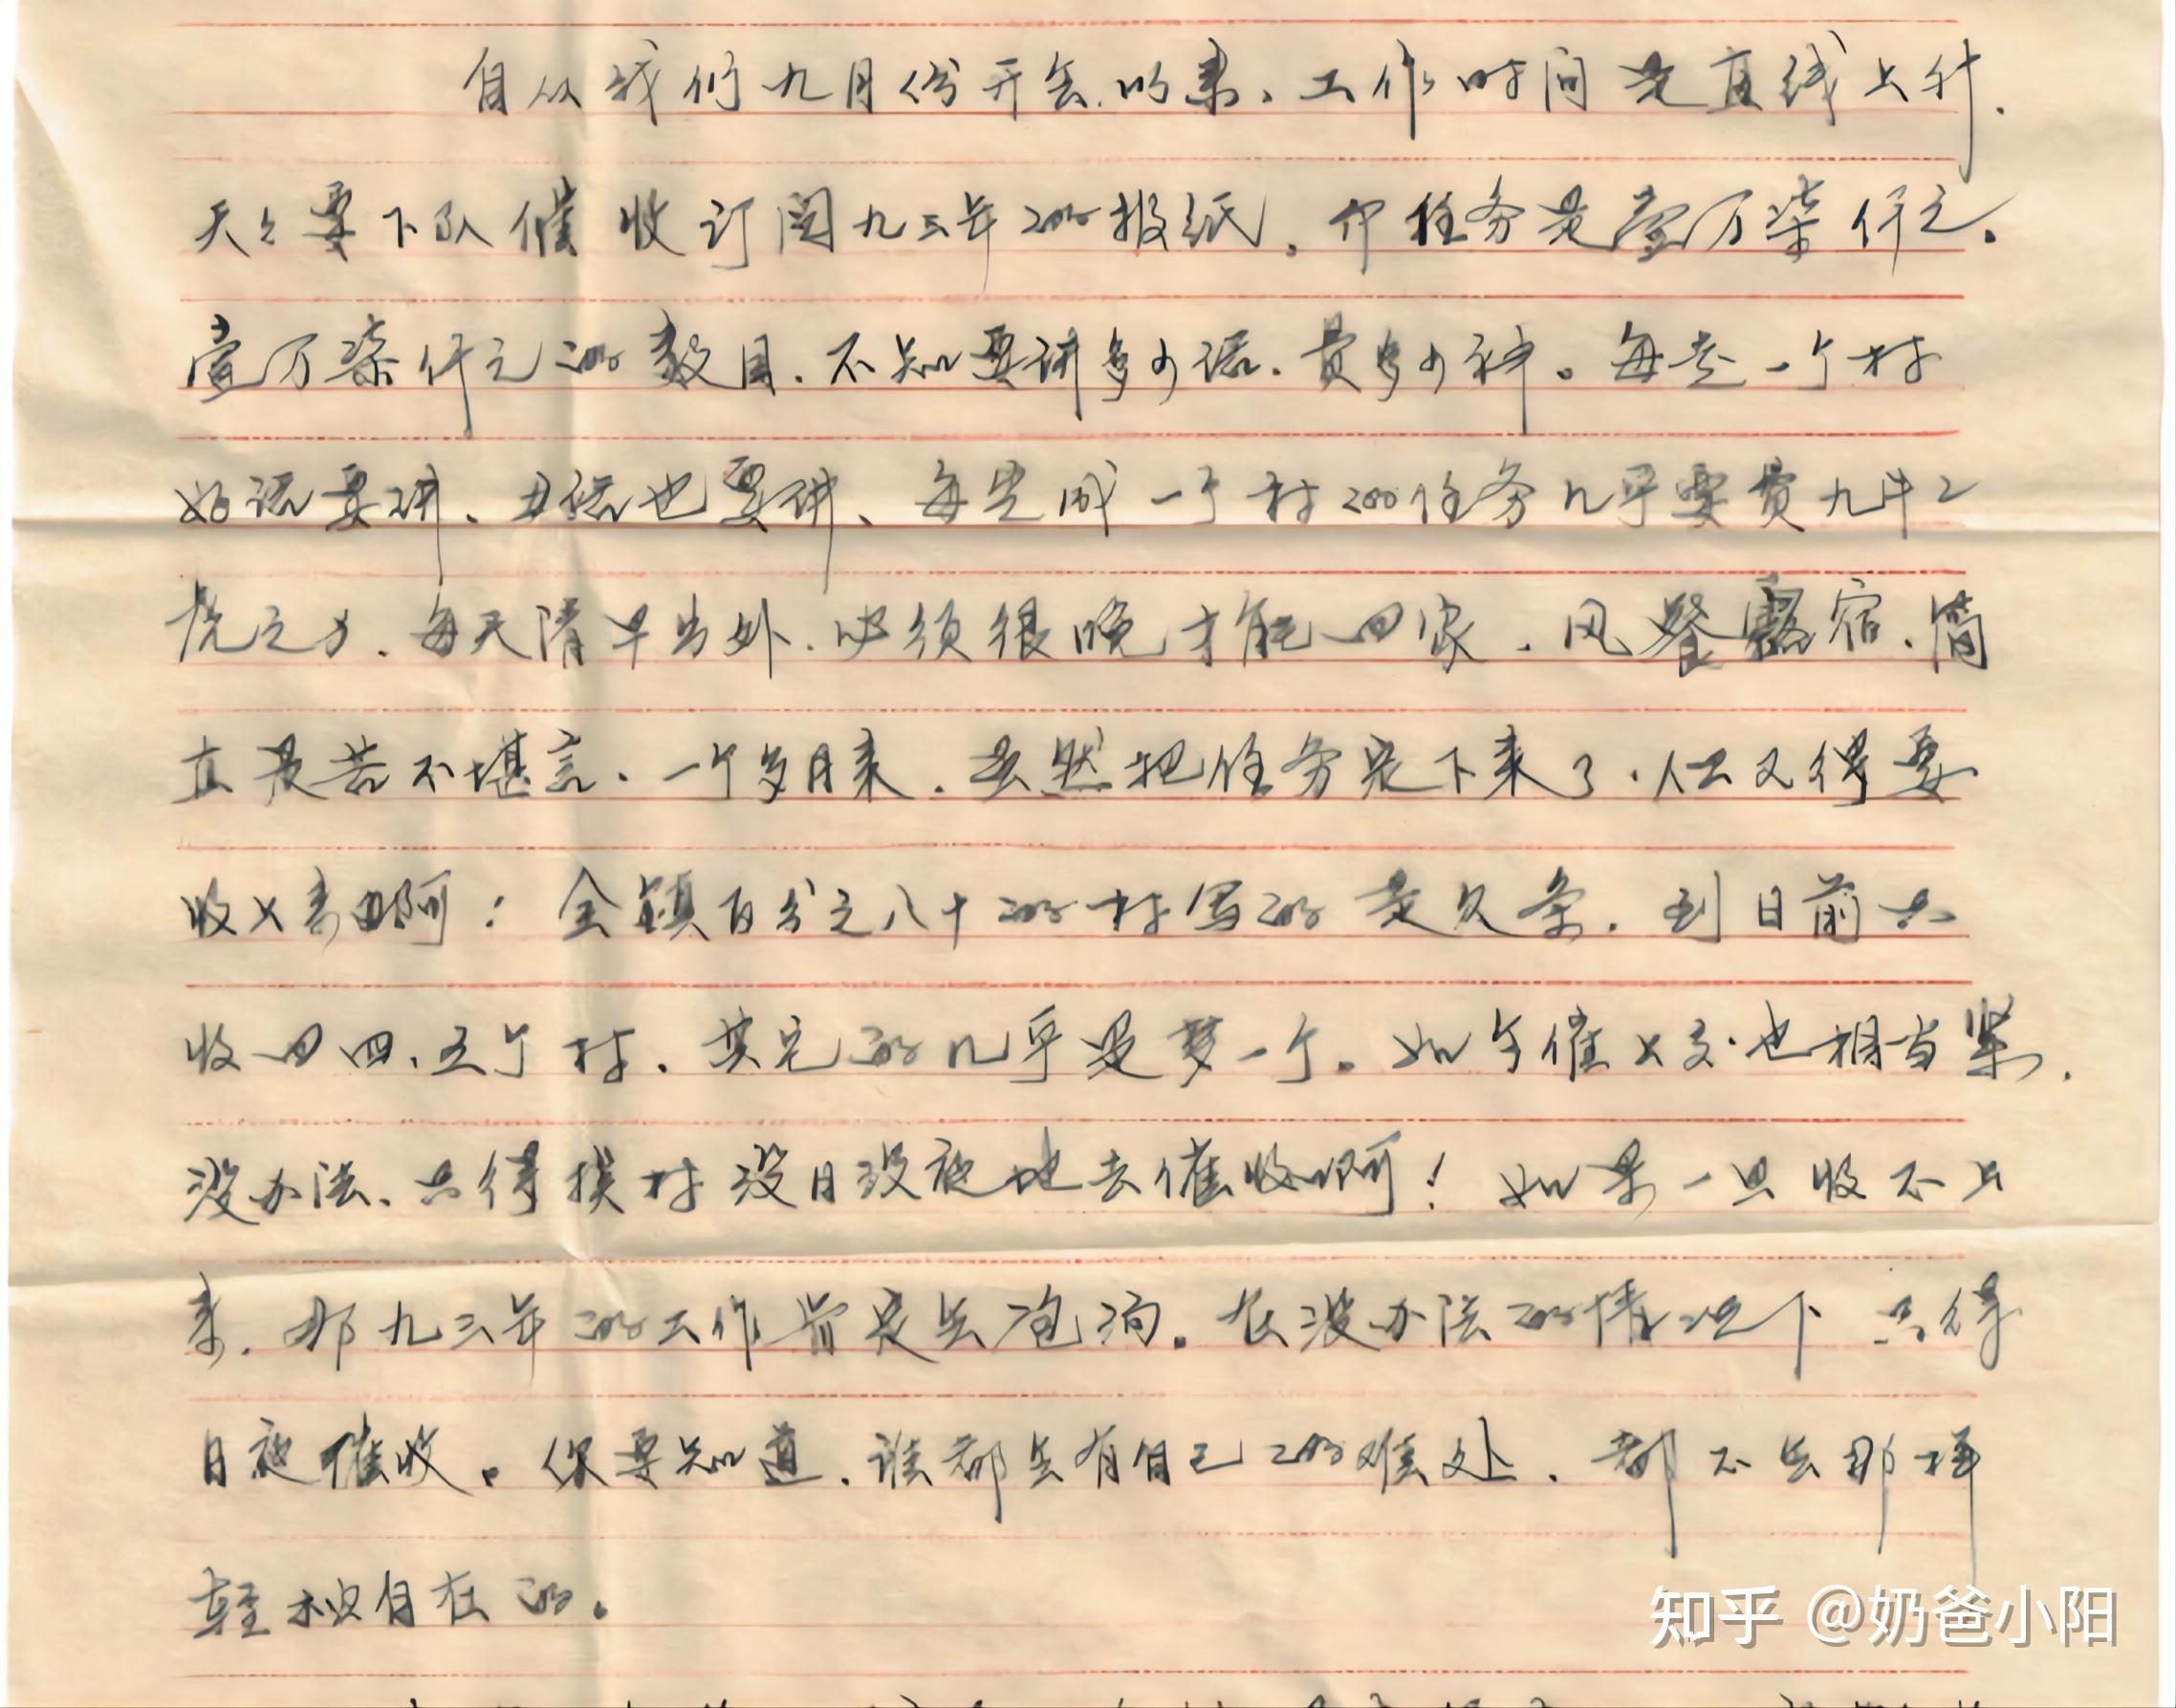 自从我们九月份开会以来、工作时间是直线上升.
天々要下队催收订阅九三年的报纸。任务是壹万柒仟元。
壹万柒仟元的数目.不知要讲多少话.费多少神。每走一个村
好话要讲、丑话也要讲、每完成一个村的任务几乎要费九牛二
虎之力.每天清早出外.必须很晚才能回家.风餐露宿.简
直是苦不堪言.一个多月来.虽然把任务定下来了.但又得要
收上来啊！全镇百分之八十的村写的是欠条.到目前只
收回四、五个村.其它的几乎是梦一个。如今催上交.也相当紧.
没办法、只得挨村没日没夜地去催收啊！如果一旦收不上
来.那九三年的工作肯定会泡汤。在没办法的情况下只得
日夜催收。你要知道.谁都会有自己的难处.都不会那样
轻松自在的。
知乎 @奶爸小阳